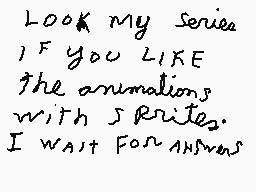 LOOK my series
IF YOU LIKE
the animations
with sprites.
I WAIT FOR ANSWERS